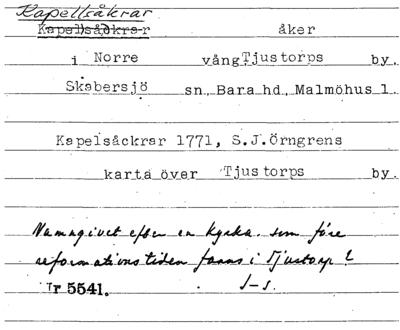 Kapellsåkrar
Kapellsåkrar åker
i Norre vång Tjustorps by.
Skabersjö sn, Bara hd, Malmöhus l.
Kapelsåckrar 1771, S.J.Örngrens
karta över Tjustorps by.
Namngivet efter en kyrka som före
reformationstiden fanns i Tjustorp?
Tr 5541. J-s.